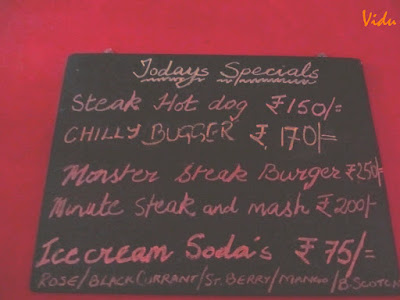 Vidu
Todays Specials
Steak Hot dog ₹150/=
CHILLY BUGGER ₹ 170/=
Monster Steak Burger ₹250/=
Minute Steak and mash ₹200/=
Ice cream Soda's ₹ 75/=
ROSE/BLACKCURRANT/ST.BERRY/MANGO/B.SCOTCH